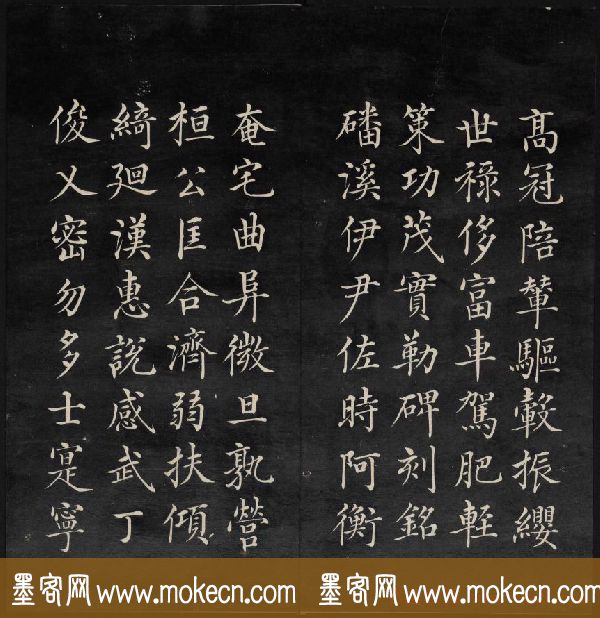 高冠陪輦驅轂振纓
世祿侈富車駕肥輕
策功茂實勒碑刻銘
磻溪伊尹佐時阿衡
奄宅曲阜微旦孰營
桓公匡合濟弱扶傾
綺迴漢惠說感武丁
俊乂密勿多士寔寧
墨客网 www.mokecn.com 墨客网 www.mokecn.com